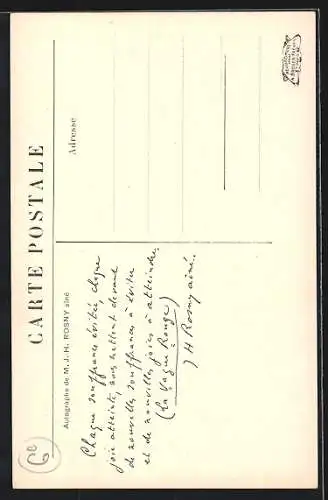 CARTE POSTALE
Autographe de M. J. H. ROSNY aîné
Adresse
Chaque souffrance évitée, chaque
joie atteinte, nous mettent devant
de nouvelles souffrances à éviter
et de nouvelles joies à atteindre.
(La Vague Rouge)
J H Rosny aîné.
6e